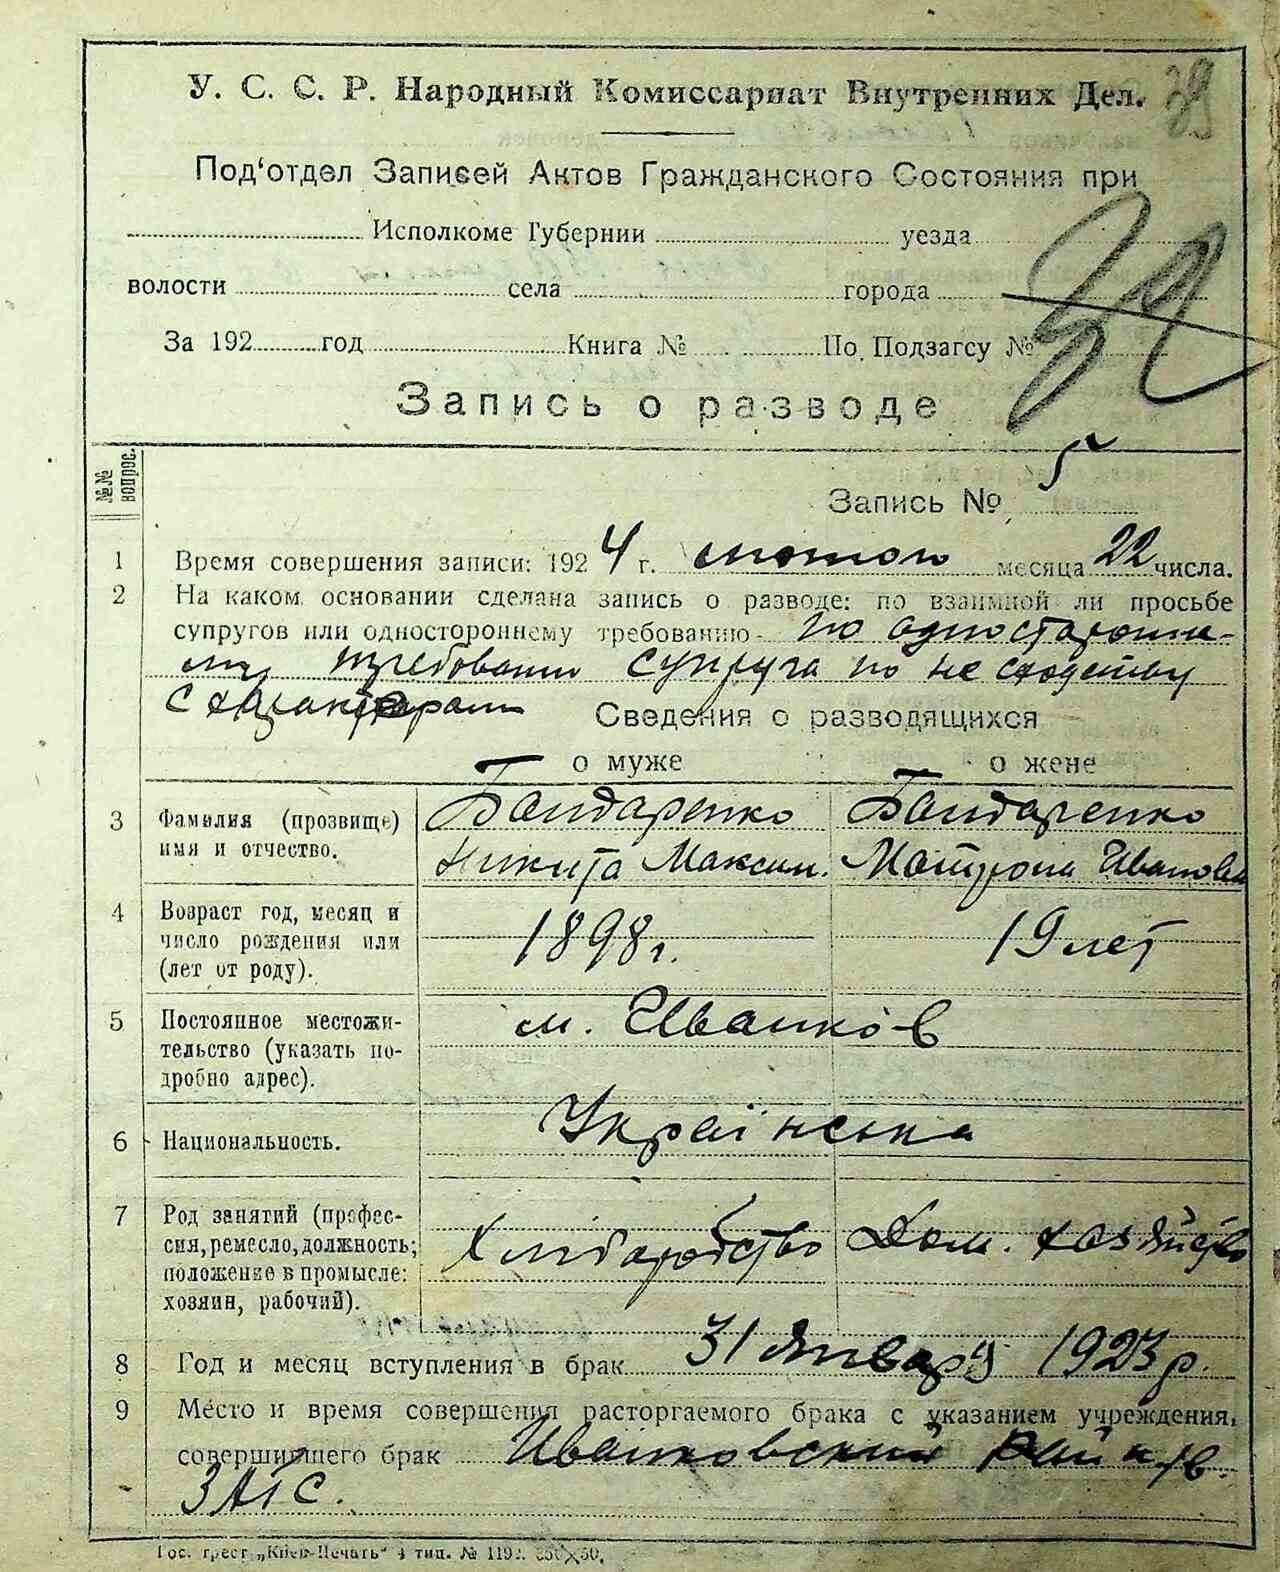 39
У. С. С. Р. Народный Комиссариат Внутренних Дел.
Под‘отдел Записей Актов Гражданского Состояния при
Исполкоме Губернии уезда
волости села города
За 192 год Книга № По Подзагсу №
Запись о разводе
№№ вопрос.
Запись № 5
1 Время совершения записи: 1924 г. лютого месяца 22 числа.
2 На каком основании сделана запись о разводе: по взаимной ли просьбе
супругов или одностороннему требованию - по односторонне-
му требованию супруга по не сходству
с характерами
Сведения о разводящихся
о муже о жене
3 Фамилия (прозвище) Бондаренко Бондаренко
имя и отчество. Никита Максим. Мотрона Ивановна
4 Возраст год, месяц и
число рождения или 1898 г. 19 лет
(лет от роду).
5 Постоянное местожи- м. Иванков
тельство (указать по-
дробно адрес).
6 Национальность. Українська
7 Род занятий (профес-
сия, ремесло, должность; Хліборобство Дом. хозяйство
положение в промысле:
хозяин, рабочий).
8 Год и месяц вступления в брак 31 января 1923 р.
9 Место и время совершения расторгаемого брака с указанием учреждения,
совершившего брак Иванковский Рай
ЗАГС.
Гос. трест „Киев-Печать“ 4 тип. № 1192. 350×50.